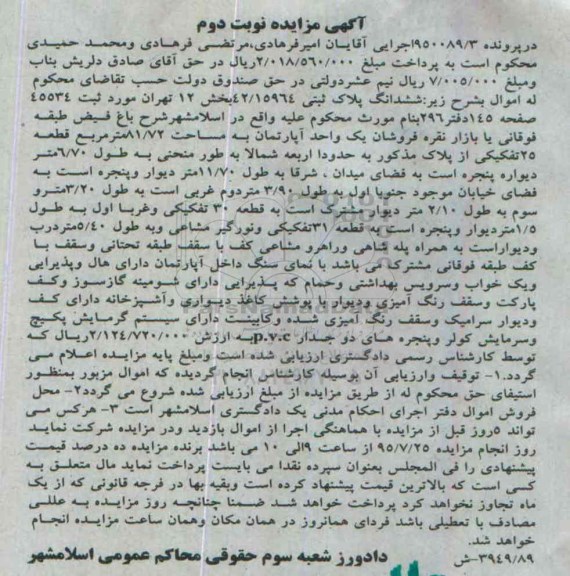 آگهی مزایده نوبت دوم
درپرونده ۹۵۰۰۸۹/۳اجرایی آقایان امیرفرهادی،مرتضی فرهادی ومحمد حمیدی
محکوم است به پرداخت مبلغ ۲/۰۱۸/۵۶۰/۰۰۰ریال در حق آقای صادق دلریش بناب
ومبلغ ۷/۰۰۵/۰۰۰ ریال نیم عشردولتی در حق صندوق دولت حسب تقاضای محکوم
له اموال بشرح زیر:ششدانگ پلاک ثبتی ۴۲/۱۵۹۶۴بخش ۱۲ تهران مورد ثبت ۴۵۵۳۴
صفحه ۱۴۵دفتر۲۹۶بنام مورث محکوم علیه واقع در اسلامشهرشرح باغ فیض طبقه
فوقانی یا بازار نقره فروشان یک واحد آپارتمان به مساحت ۸۱/۷۲مترمربع قطعه
۲۵تفکیکی از پلاک مذکور به حدودا اربعه شمالا به طور منحنی به طول ۶/۷۰متر
دیواره پنجره است به فضای میدان ، شرقا به طول ۱۱/۷۰متر دیوار وپنجره است به
فضای خیابان موجود جنوبا اول به طول ۳/۹۰ متردوم غربی است به طول ۳/۲۰مترو
سوم به طول ۲/۱۰ متر دیوار مشترک است به قطعه ۳۰ تفکیکی وغربا اول به طول
۱/۵متردیوار وپنجره است به قطعه ۳۱تفکیکی ونورگیر مشاعی وبه طول ۵/۴۰متردرب
ودیواراست به همراه پله شاهی وراهرو مشاعی کف با سقف طبقه تحتانی وسقف با
کف طبقه فوقانی مشترک می باشد با نمای سنگ داخل آپارتمان دارای هال وپذیرایی
ویک خواب وسرویس بهداشتی وحمام که پذیرایی دارای شومینه گازسوز وکف
پارکت وسقف رنگ آمیزی ودیوار با پوشش کاغذ دیواری وآشپزخانه دارای کف
ودیوار سرامیک وسقف رنگ آمیزی شده وکابینت دارای سیستم گرمایش پکیج
وسرمایش کولر وپنجره های دو جدار p.v.cبه ارزش ۲/۱۲۴/۷۲۰/۰۰۰ریال که
توسط کارشناس رسمی دادگستری ارزیابی شده است ومبلغ پایه مزایده اعلام می
گردد.۱- توقیف وارزیابی آن بوسیله کارشناس انجام گردیده که اموال مزبور بمنظور
استیفای حق محکوم له از طریق مزایده از مبلغ ارزیابی شده شروع می گردد۲- محل
فروش اموال دفتر اجرای احکام مدنی یک دادگستری اسلامشهر است ۳- هرکس می
تواند ۵روز قبل از مزایده با هماهنگی اجرا از اموال بازدید ودر مزایده شرکت نماید
روز انجام مزایده ۹۵/۷/۲۵ از ساعت ۹الی ۱۰ می باشد برنده مزایده ده درصد قیمت
پیشنهادی را فی المجلس بعنوان سپرده نقدا می بایست پرداخت نماید مال متعلق به
کسی است که بالاترین قیمت پیشنهاد کرده است وبقیه بها در فرجه قانونی که از یک
ماه تجاوز نخواهد کرد پرداخت خواهد شد ضمنا چنانچه روز مزایده به عللی
مصادف با تعطیلی باشد فردای همانروز در همان مکان وهمان ساعت مزایده انجام
خواهد شد.
۳۹۴۹/۸۹-ش دادورز شعبه سوم حقوقی محاکم عمومی اسلامشهر